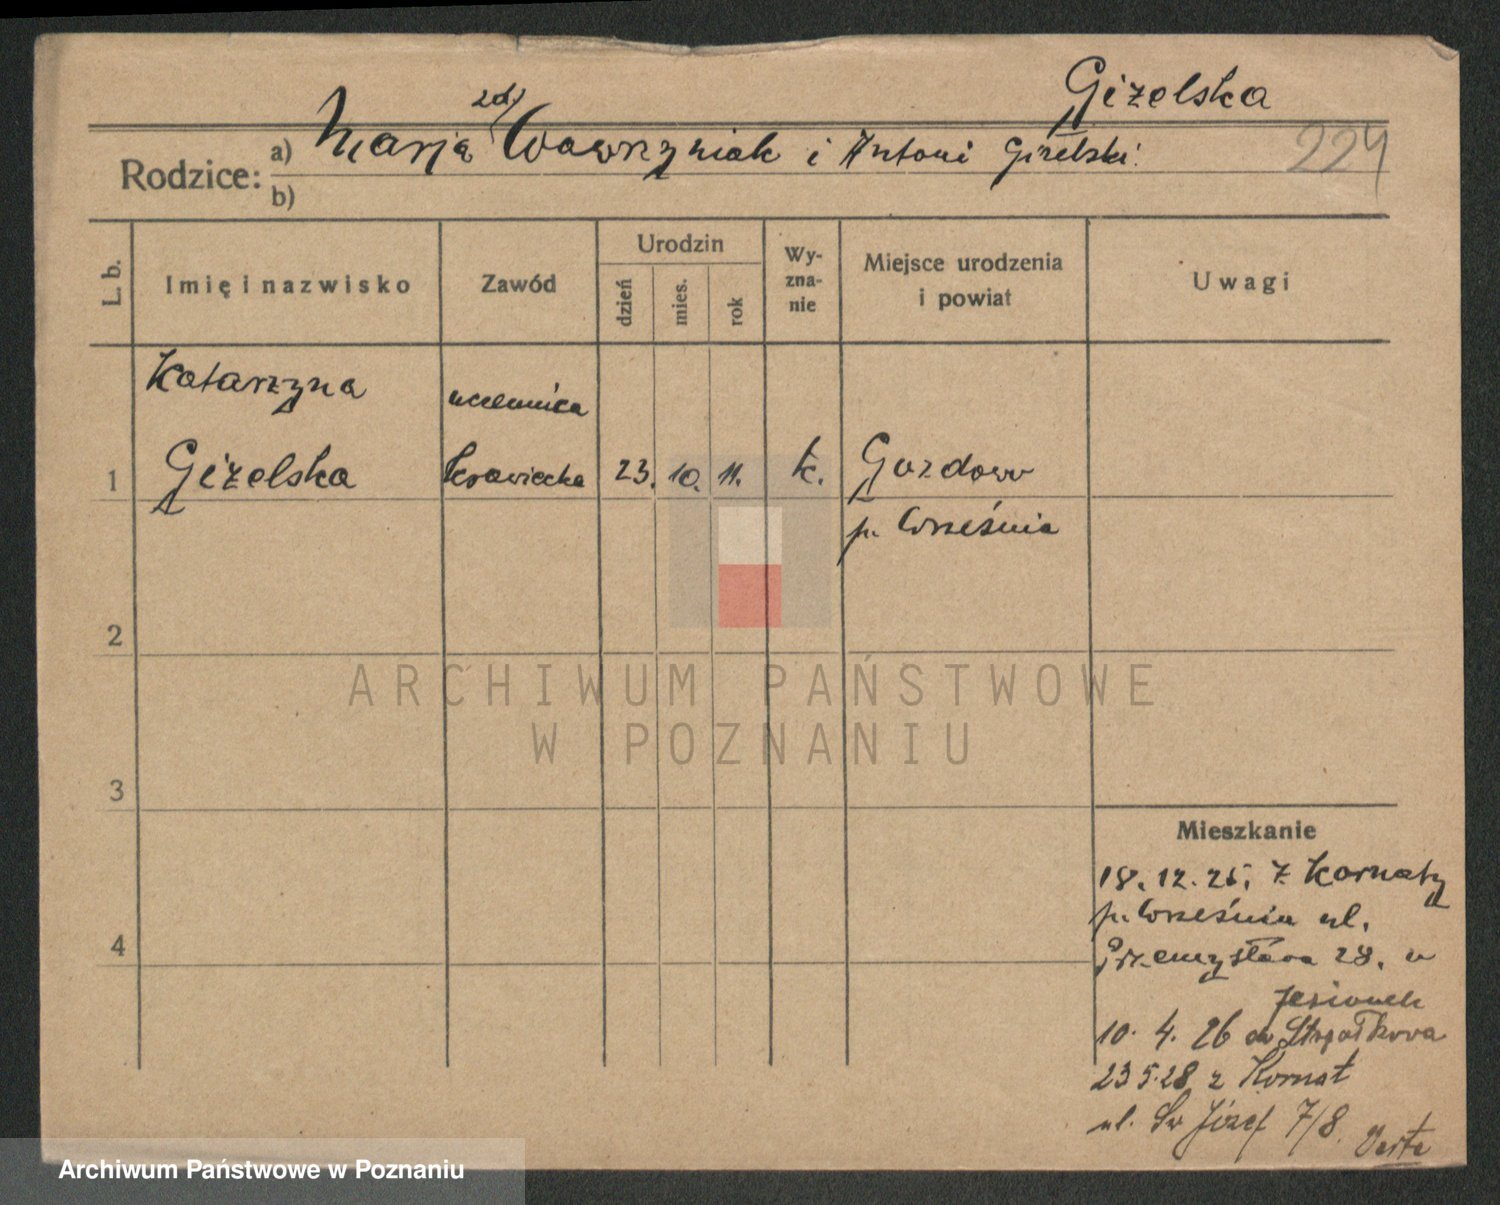 Giżelska
zd/
Rodzice: a) Marja Wawrzyniak i Antoni Giżelski. 224
b)
L. b. Imię i nazwisko Zawód Urodzin dzień mies. rok Wy-zna-nie Miejsce urodzenia i powiat Uwagi
Katarzyna uczennica
1 Giżelska krawiecka 23. 10. 11. k. Gozdowo
p. Września
2
ARCHIWUM PAŃSTWOWE
W POZNANIU
3
Mieszkanie
18.12.25, z Kornaty
p. Września ul.
4
Przemysława 28. u
Jesionek
10. 4. 26 do Strzałkowa
23 5.28 z Kornat
ul. Św Józef 7/8. Verte
Archiwum Państwowe w Poznaniu